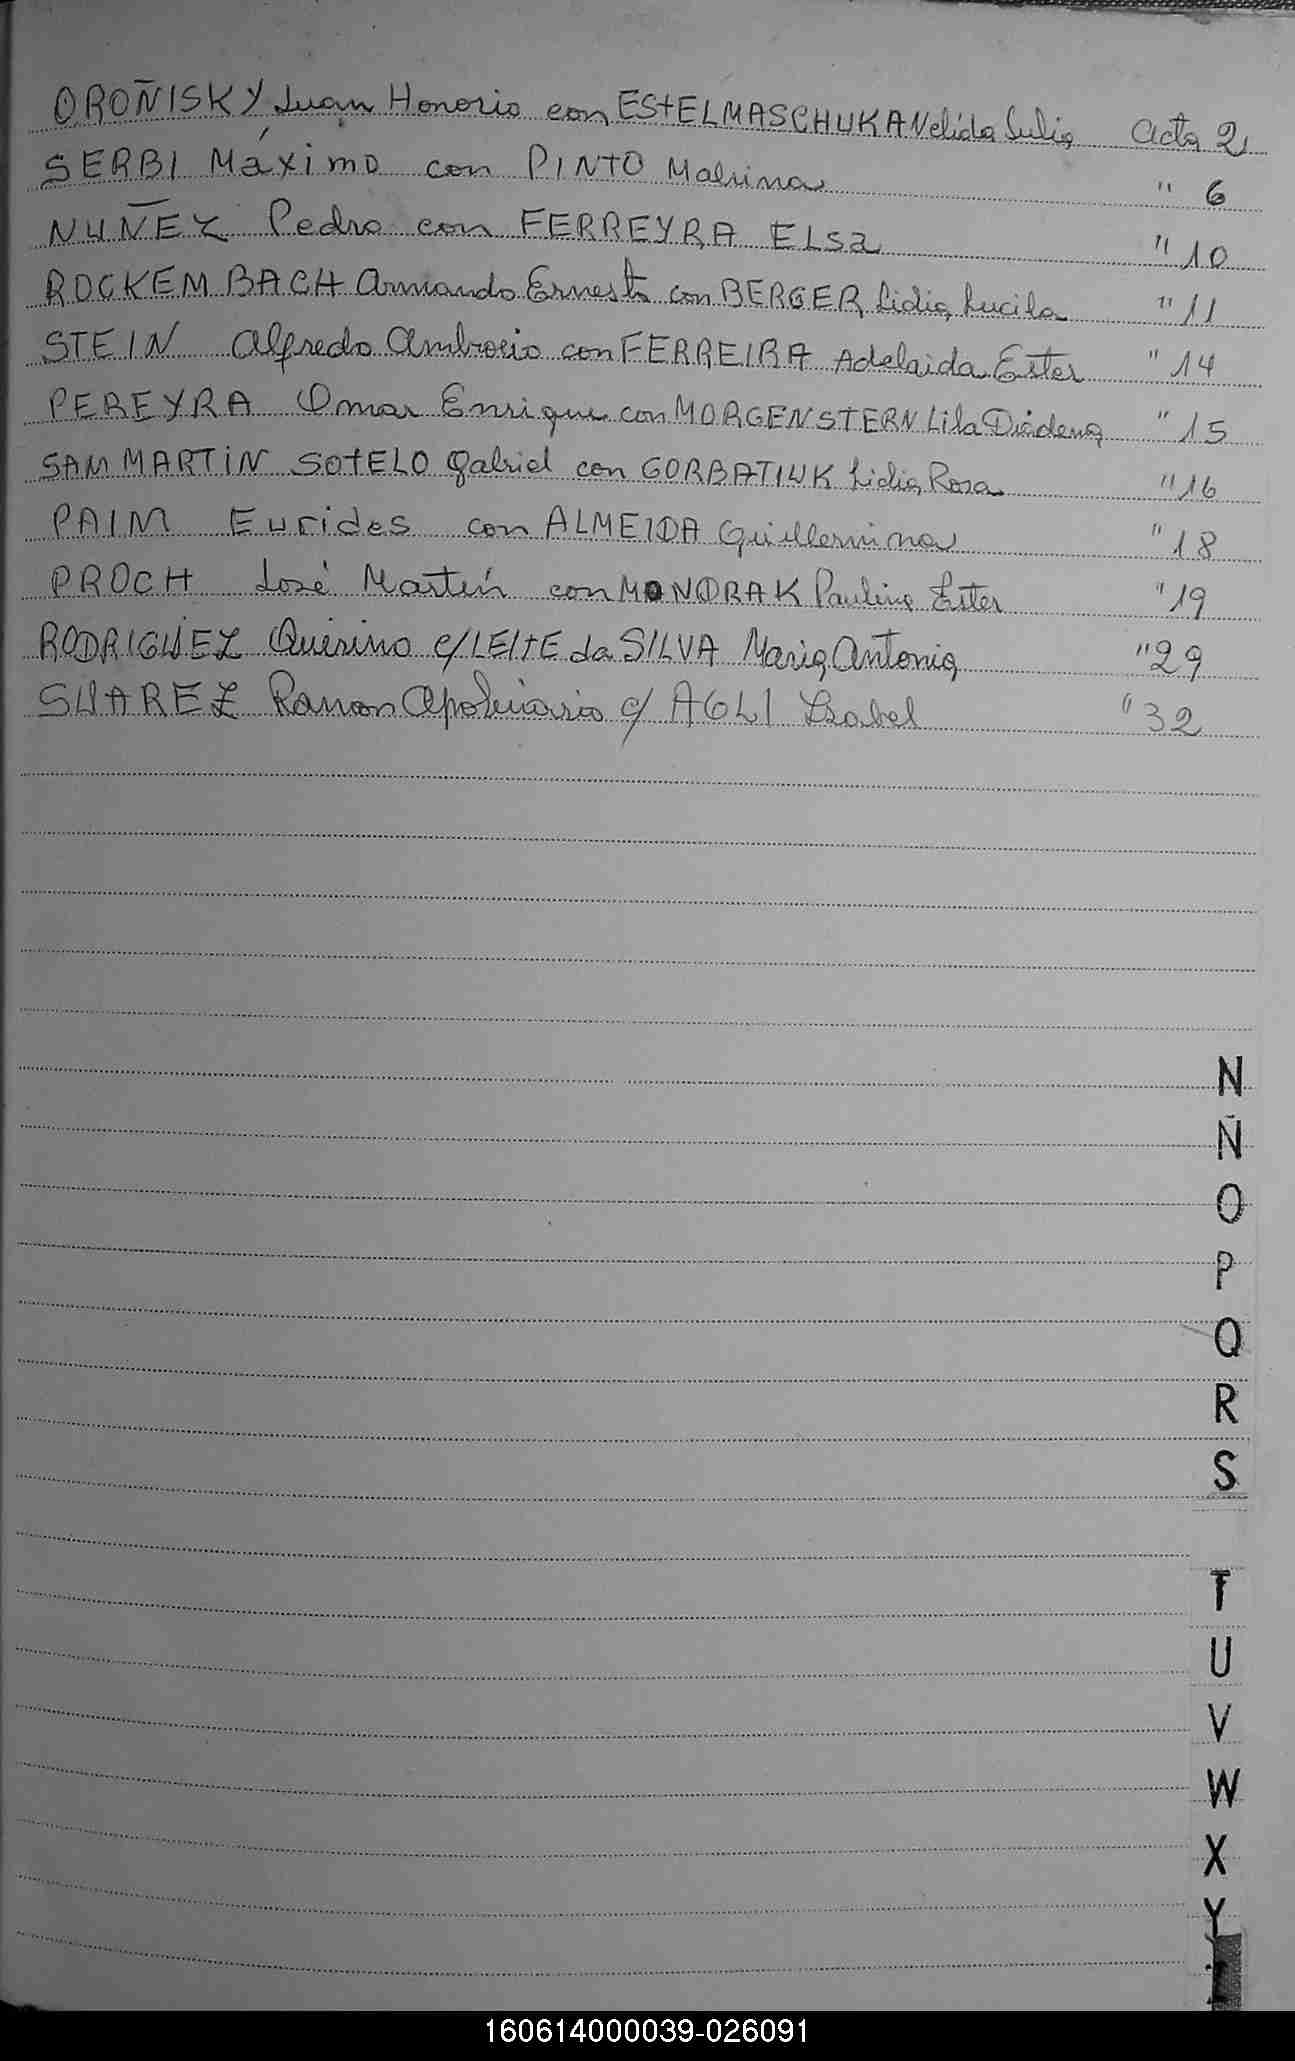 OROÑISKY Juan Honorio con ESTELMASCHUKA Nelida Julia Acta 2
SERBI Máximo con PINTO Malvina " 6
NUÑEZ Pedro con FERREYRA ELsa " 10
ROCKEMBACH Armando Ernesto con BERGER Lidia Lucila " 11
STEIN Alfredo Ambrocio con FERREIRA Adelaida Ester " 14
PEREYRA Omar Enrique con MORGENSTERN Lila " 15
SAMMARTIN SOTELO Gabriel con GORBATIUK Lidia Rosa " 16
PAIM Eurides con ALMEIDA Guillermina " 18
PROCH José Martín con MONDRAK Paulina Ester " 19
RODRIGUEZ Quirino c/ LEITE da SILVA Maria Antonia " 29
SUAREZ Ramon Apolinario c/ AGLI Isabel " 32
N
Ñ
O
P
Q
R
S
T
U
V
W
X
Y
Z
160614000039-026091